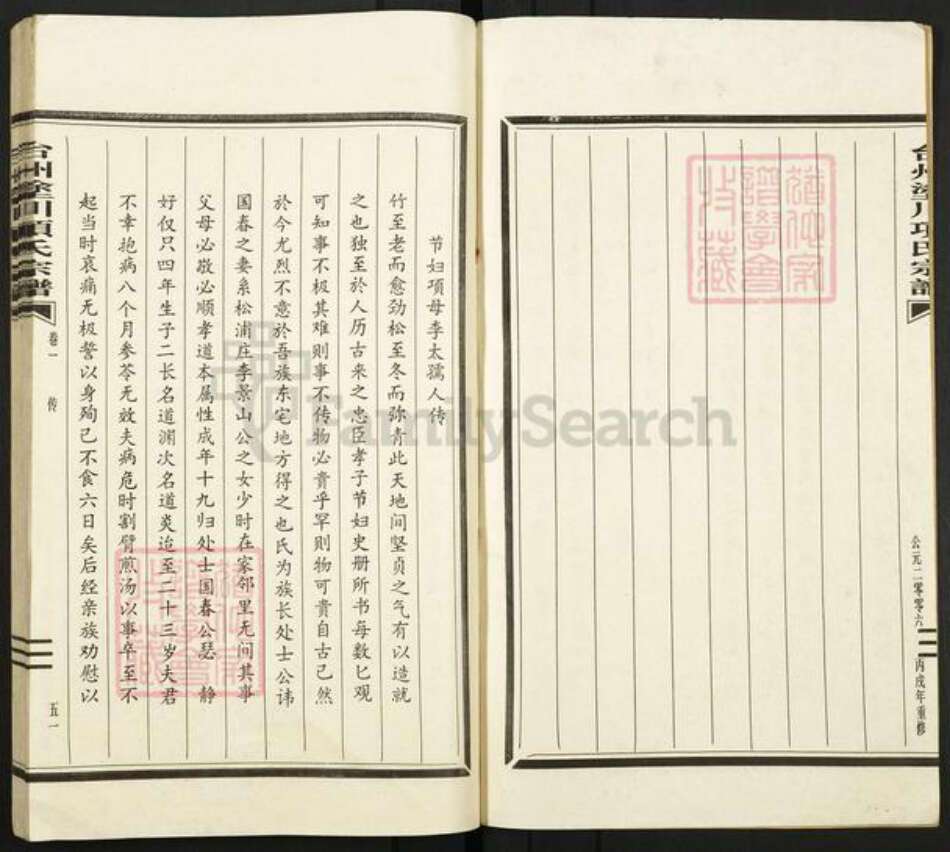 台州塗川项氏宗譜
公元二零零六
丙戌年重修
节妇项母李太孺人传
竹至老而愈劲松至冬而弥青此天地间坚贞之气有以造就
之也独至於人历古来之忠臣孝子节妇史册所书每数匕观
可知事不极其难则事不传物必贵乎罕则物可贵自古已然
於今尤烈不意於吾族东宅地方得之也氏为族长处士公讳
国春之妻系松浦庄李景山公之女少时在家邻里无间其事
父母必敬必顺孝道本属性成年十九归处士国春公瑟 静
好仅只四年生子二长名道渊次名道炎迨至二十三岁夫君
不幸抱病八个月参苓无效夫病危时割臂煎汤以事卒至不
起当时哀痛无极誓以身殉己不食六日矣后经亲族劝慰以
台州塗川項氏宗譜
卷一
传
五一
FamilySearch